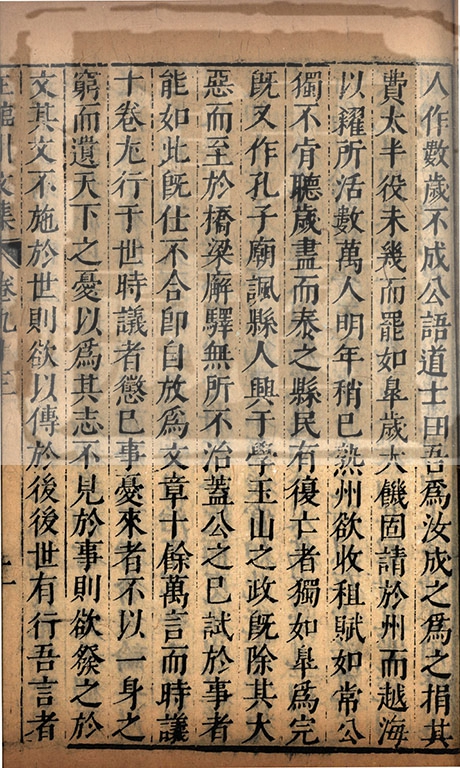 人作數歲不成公語道士曰吾爲汝成之爲之捐其
費太半役未幾而罷如臯歲大饑固請於州而越海
以糴所活數萬人明年稍已熟州欲收租賦如常公
獨不肯聽歲盡而泰之縣民有復亡者獨如臯爲完
旣又作孔子廟諷縣人興于學玉山之政旣除其大
惡而至於橋梁廨驛無所不治蓋公之已試於事者
能如此旣仕不合卽自放爲文章十餘萬言而時議
十卷尤行于世時議者懲已事憂來者不以一身之
窮而遺天下之憂以爲其志不見於事則欲發之於
文其文不施於世則欲以傳於後後世有行吾言者
王臨川文集 卷九十三